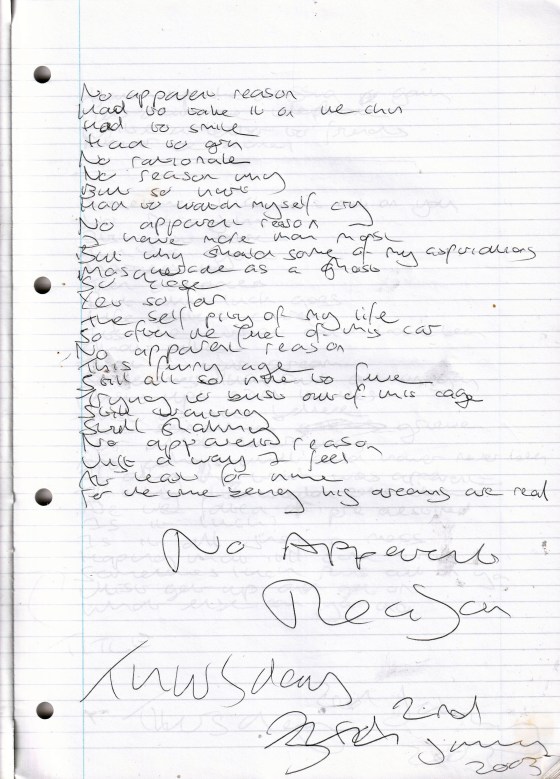 No apparent reason
Had to take it on the chin
Had to smile
Had to grin
No rationale
No reason why
But so
Had to watch myself cry
No apparent reason
I have more than most
But why should some of my aspirations
Masquerade as a ghost
So close
Yet so far
The self pity of my life
So often the fuel of this car
No apparent reason
This funny age
Still all so to
Trying to bust out of this cage
Still wanting
Still
No apparent reason
Just a way I feel
At least for
For the time being his dreams are real
No Apparent
Reason
Thursday
2nd
January
2003